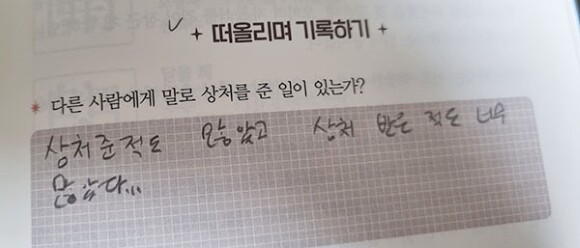 ✓ + 떠올리며 기록하기 +
* 다른 사람에게 말로 상처를 준 일이 있는가?
상처준적도 많았고 상처 받은 적도 너무
많았다...